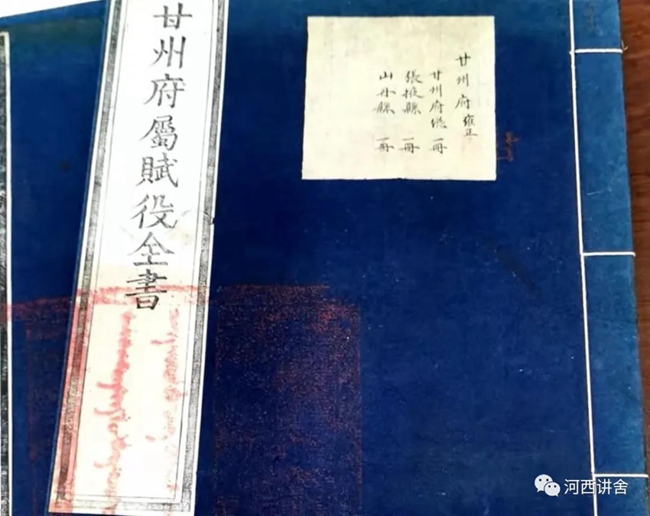 甘州府屬賦役全書
甘州府 雍正
甘州府總 一冊
張掖縣 一冊
山丹縣 一冊
河西讲舍